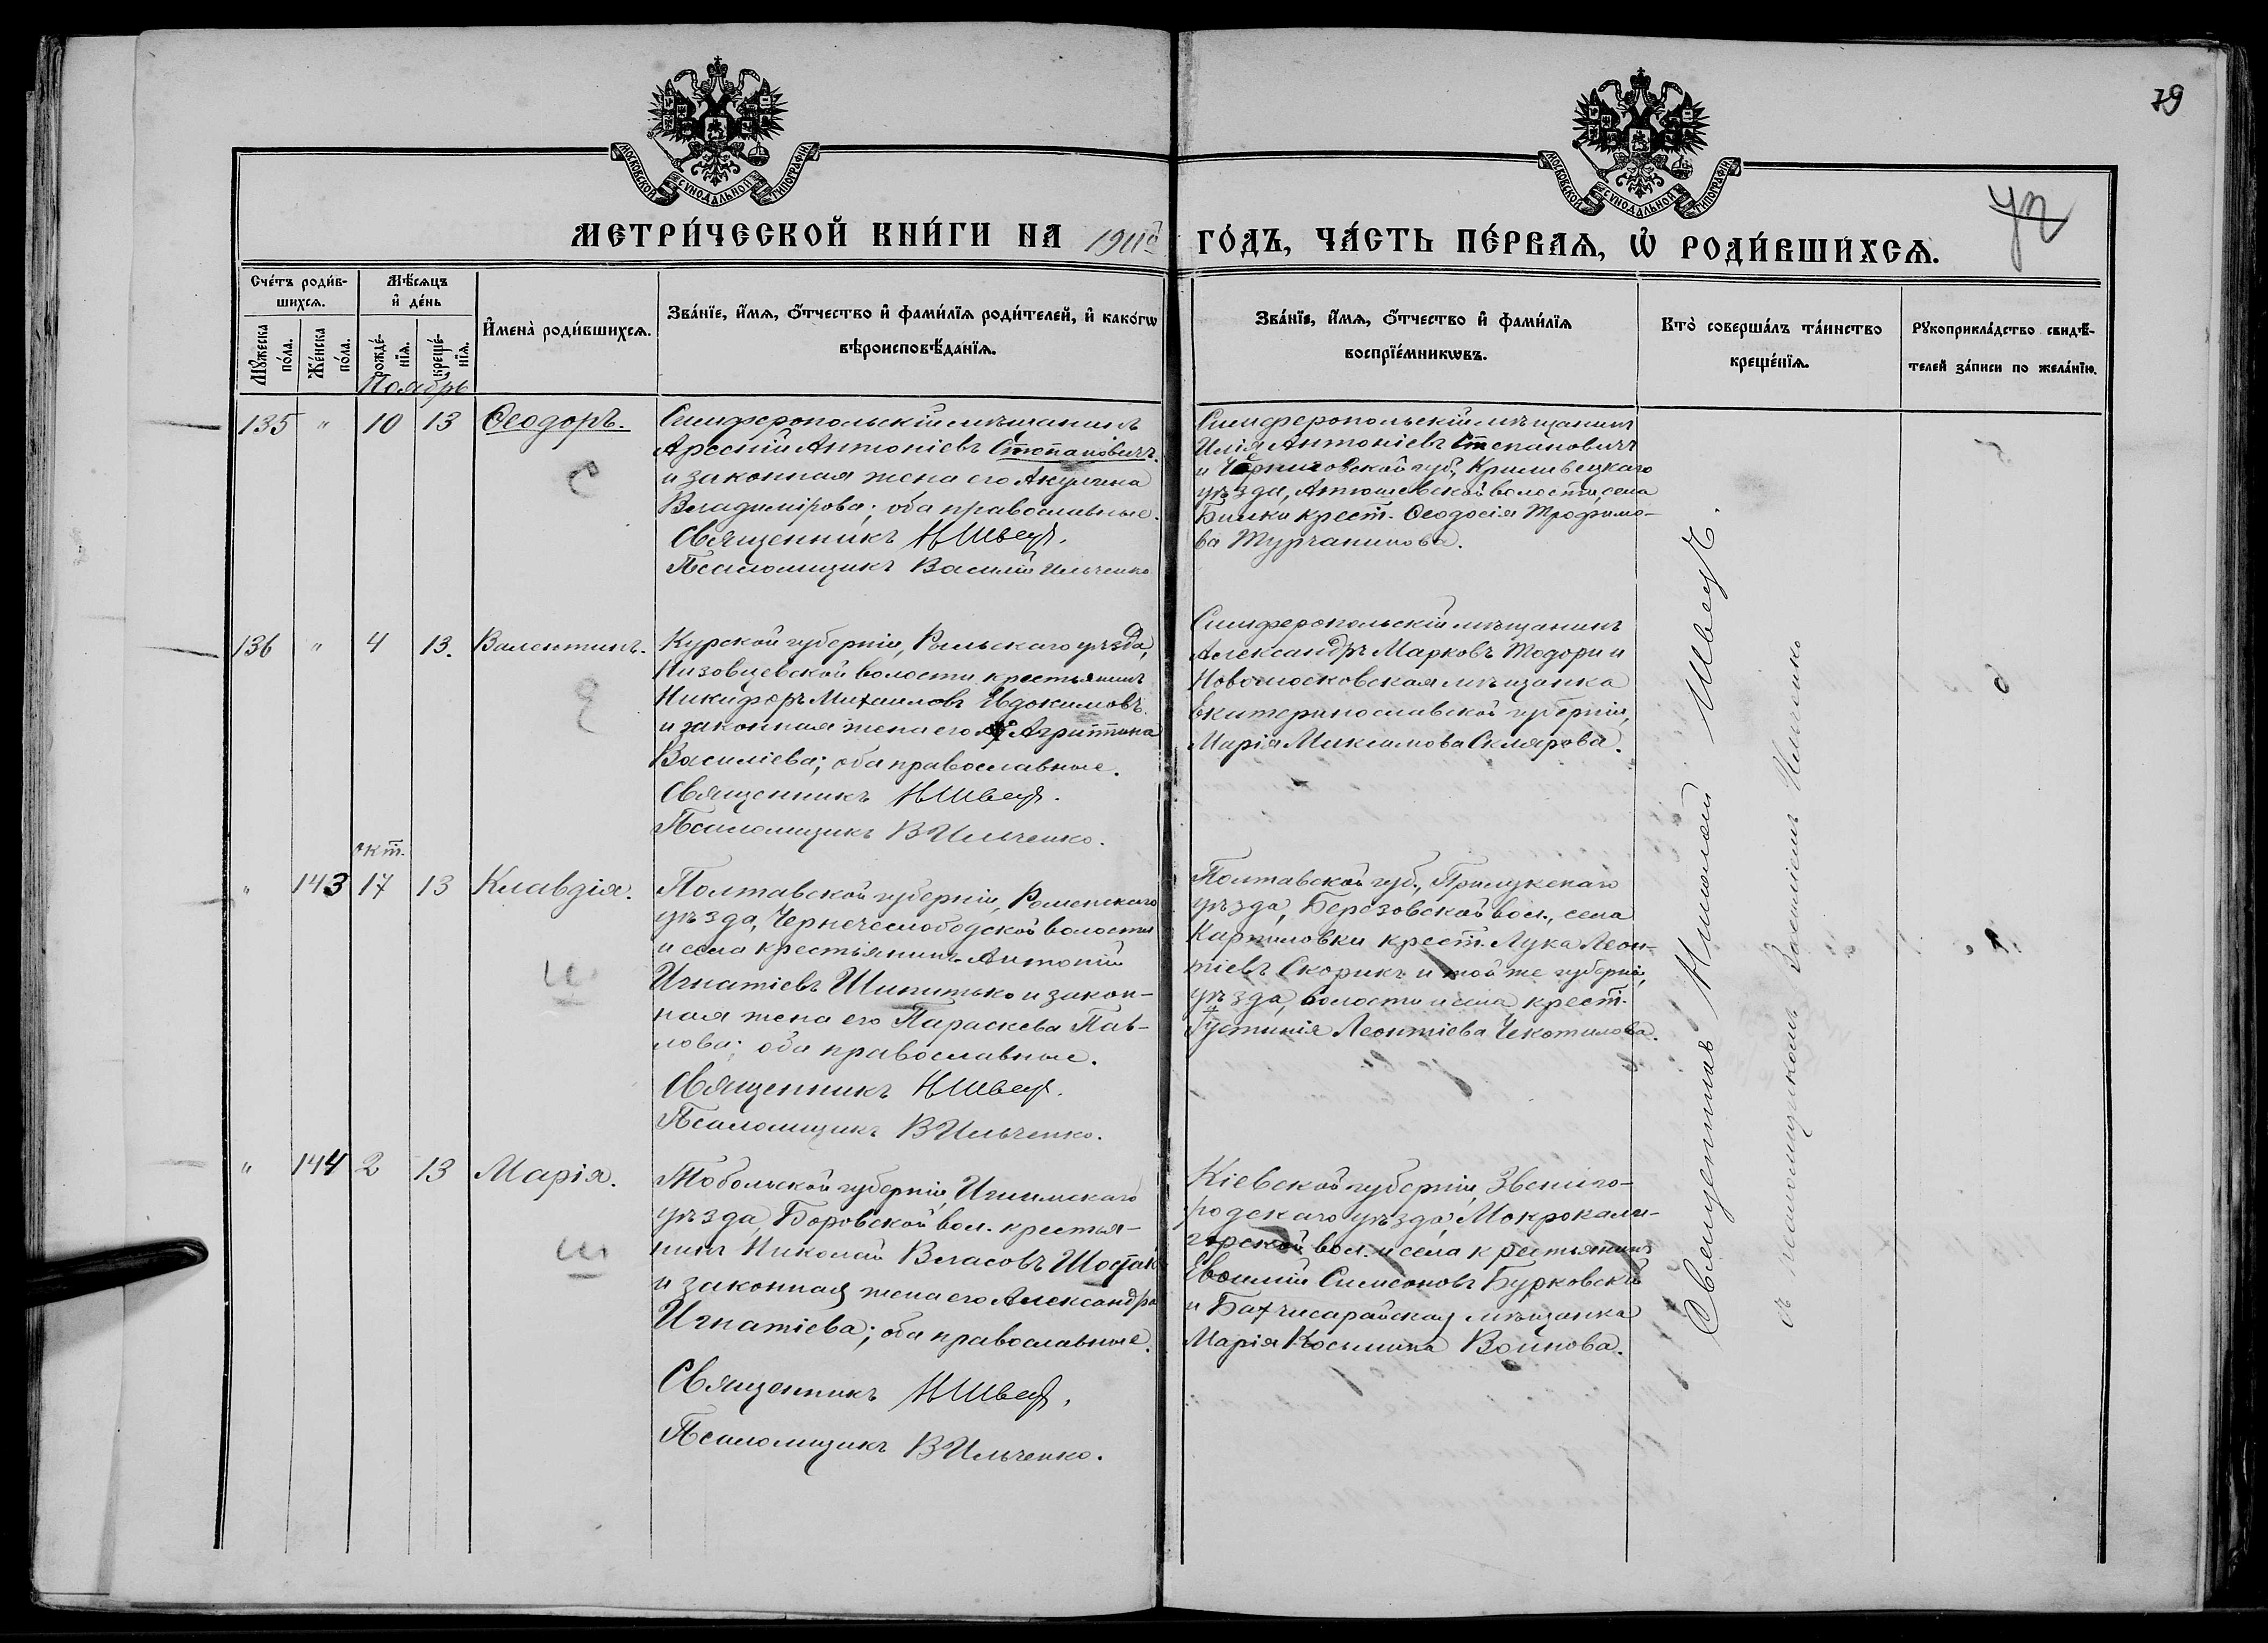 79
уп
МОСКОВСКОЙ СѴНОДАЛЬНОЙ ТИПОГРАФІИ
МОСКОВСКОЙ СѴНОДАЛЬНОЙ ТИПОГРАФІИ
МЕТРИ́ЧЕСКОЙ КНИ́ГИ НА 1911й ГО́ДЪ, ЧА́СТЬ ПЕ́РВАѦ, Ѡ РОДИ́ВШИХСѦ.
Сче́тъ роди́в-
шихсѧ.
Мꙋ́жеска по́ла.
Же́нска по́ла.
Мѣ́сѧцъ
и҆ де́нь
рожде́-нїѧ.
креще́-нїѧ.
И҆мена̀ роди́вшихсѧ.
Зва́нїе, и҆́мѧ, ѻ҆́тчество и҆ фами́лїѧ роди́телей, и҆ како́гѡ
вѣроисповѣ́данїѧ.
Зва́нїе, и҆́мѧ, ѻ҆́тчество и҆ фами́лїѧ
воспрїе́мникѡвъ.
Кто̀ соверша́лъ та́инство
креще́нїѧ.
Рꙋкоприкла́дство свидѣ́-
телей за́писи по жела́нїю.
Ноябрь
135 " 10 13 Ѳеодоръ.
Симферопольскій мѣщанинъ
Арсеній Антоніевъ Степановичъ
и законная жена его Акулина
Владимірова; оба православные.
Священникъ Н Швецъ.
Псаломщикъ Василій Ильченко
Симферопольскій мѣщанинъ
Илія Антоніевъ Степановичъ
и Черниговской губ., Кролевецкаго
уѣзда, волости, села
крест. Ѳеодосія Трофимо-
ва Турчанинова.
С
136 " 4 13. Валентинъ.
Курской губерніи, Рыльскаго уѣзда,
Низовцевской волости крестьянинъ
Никифоръ Михаиловъ Евдокимовъ
и законная жена его Агриппина
Василіева; оба православные.
Священникъ Н Швецъ.
Псаломщикъ В Ильченко.
Симферопольскій мѣщанинъ
Александръ Марковъ Тодори и
Новомосковская мѣщанка
Екатеринославской губерніи,
Марія Максимова Склярова.
окт.
" 143 17 13 Клавдія.
Полтавской губерніи, Роменскаго
уѣзда, Чернечеслободской волости
и села крестьянинъ Антоній
Игнатіевъ Шипитько и закон-
ная жена его Параскева Пав-
лова; оба православные.
Священникъ Н Швецъ.
Псаломщикъ В Ильченко.
Полтавской губ., Прилукскаго
уѣзда, Березовской вол., села
Карпиловки крест. Лука Леон-
тіевъ Скорикъ и той же губерніи,
уѣзда, волости и села, крест.
Іустинія Леонтіева Чекотилова.
ш
" 144 2 13 Марія.
Тобольской губерніи, Ишимскаго
уѣзда, Боровской вол. крестья-
нинъ Николай Власовъ Шостакъ
и законная жена его Александра
Игнатіева; оба православные.
Священникъ Н Швецъ.
Псаломщикъ В Ильченко.
Кіевской губерніи, Звениго-
родскаго уѣзда, Мокрокали-
горской вол. и села крестьянинъ
Евѳимій Симеоновъ Бурковскій
и Бахчисарайская мѣщанка
Марія Косьмина Воинова.
ш
Священникъ Николай Швецъ.
съ псаломщикомъ Василіемъ Ильченко